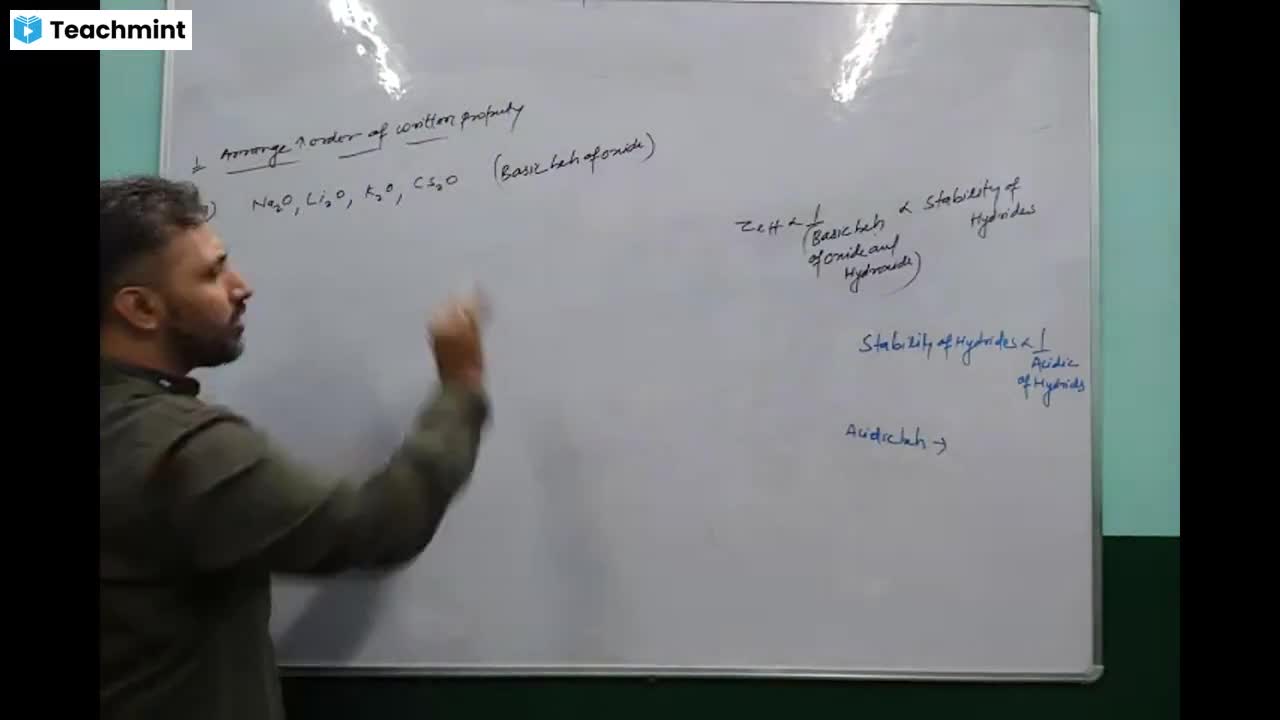 Teachmint
1 Arrange ↑ order of written property
) Na₂O, Li₂O, K₂O, Cs₂O (Basic beh of oxide)
Zeff ∝ 1/(Basic beh of oxide and Hydroxide) ∝ Stability of Hydrides
Stability of Hydrides ∝ 1/Acidic of Hydrids
Acidic beh →